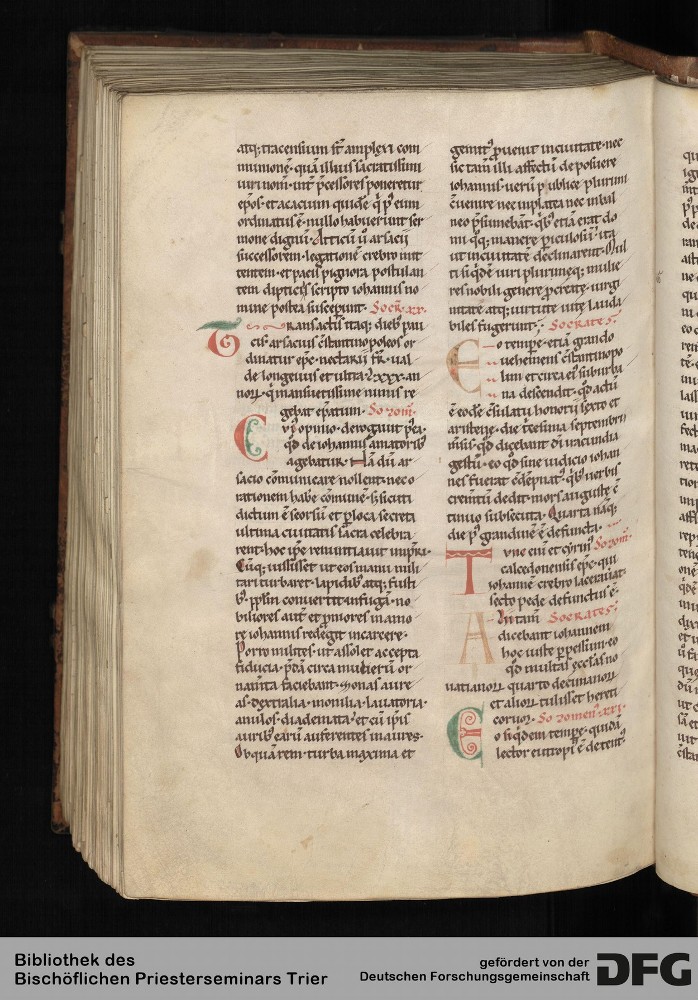 atq; tracensium st̄ amplexi com
munionē. quā illius sacratissimi
uiri nom̄. int̄ p̄cessores poneretur
ep̄os. et acacium quidē q̄ p⁹ eum
ordinatus ē. nullo habuerunt ser
mone dignū. Atticū ū arsacii
successorem. legationē crebro mit
tentem. et pacis pignora postulan
tem. dipticis scripto iohannis no
mine postea susceperunt. Socr̄. xx.
Transactis itaq; dieb⁹ pau
cis arsacius c̄stantinopoleos or
dinatur ep̄c. nectarii fr̄. ual
de longeuus et ultra lxxx. an
nor̄. q̄ mansuetissime nimis re
gebat ep̄atum. Sozom̄.
Cui⁹ opinio. derogauit p̄ea.
qd̄ de iohannis amatorib⁹
agebatur. Nā dū ar
sacio cōmunicare nollent. nec o
rationem habē cōmunē. s; sicuti
dictum ē seorsū et p̄ loca secreta
ultima ciuitatis sacra celebra
rent. hoc ip̄e renuntiauit imp̄ri.
Cūq; iussisset ut eos manu mili
tari turbaret. lapidib⁹ atq; fusti
b⁹. pp̄lm conuertit in fugā. no
biliores aut̄ et p̄mores in amo
re iohannis redegit in carcere.
Porro milites. ut assolet accepta
fiducia. p̄dā circa mulierū or
nam̄ta faciebant. zonas aure
as. dextralia. monilia. lauatoria.
anulos. diademata. et cū ip̄is
aurib⁹ earū auferentes inaures.
Ob quā rem. turba maxima et
gemit⁹ p̄uenit in ciuitate. nec
sic tam̄ illi affectū deposuere
iohannis. uerū publice plurimi
c̄uenire nec in platea nec in bal
neo p̄sumebāt. qb⁹ etiā erat do
mi q̄q; manere piculosū. ita
ut in ciuitate declinarent. Mul
ti siqdē uiri plurimeq; mulie
res nobili genere p̄create. uirgi
nitate atq; uirtute uite lauda
biles fugerunt. Socrates.
Eo tempr̄e. etiā grando
uehemens c̄stantinopo
lim et circa ei⁹ suburbi
na descendit. qd̄ actū
ē eodē c̄sulatu honorii sexto et
aristenē. die t̄cesima septembri
m̄sis. qd̄ dicebant dī iracundia
gestū. eo qd̄ sine iudicio iohan
nes fuerat cōdēpnat⁹. qb⁹ uerbis
crem̄tū dedit. mors auguste ē
tinuo subsecuta. Quarta nāq;
die p⁹ grandinē ē defuncta.
Tunc eni et cyrin⁹ Sozom̄.
calcedonensis ep̄c. qui
iohannē crebro lacerauat.
secto pede defunctus ē.
Attam̄ Socrates.
dicebant iohannem
hoc iuste p̄pessum. eo
qd̄ multas ecc̄las no
uatianor̄. quarto decimanor̄
et alior̄ tulisset hereti
cor̄. Sozomen⁹. xxi.
Eo siqdem tempr̄e. quidā
lector eutropi⁹ ē detent⁹.
Bibliothek des
Bischöflichen Priesterseminars Trier
gefördert von der
Deutschen Forschungsgemeinschaft
DFG